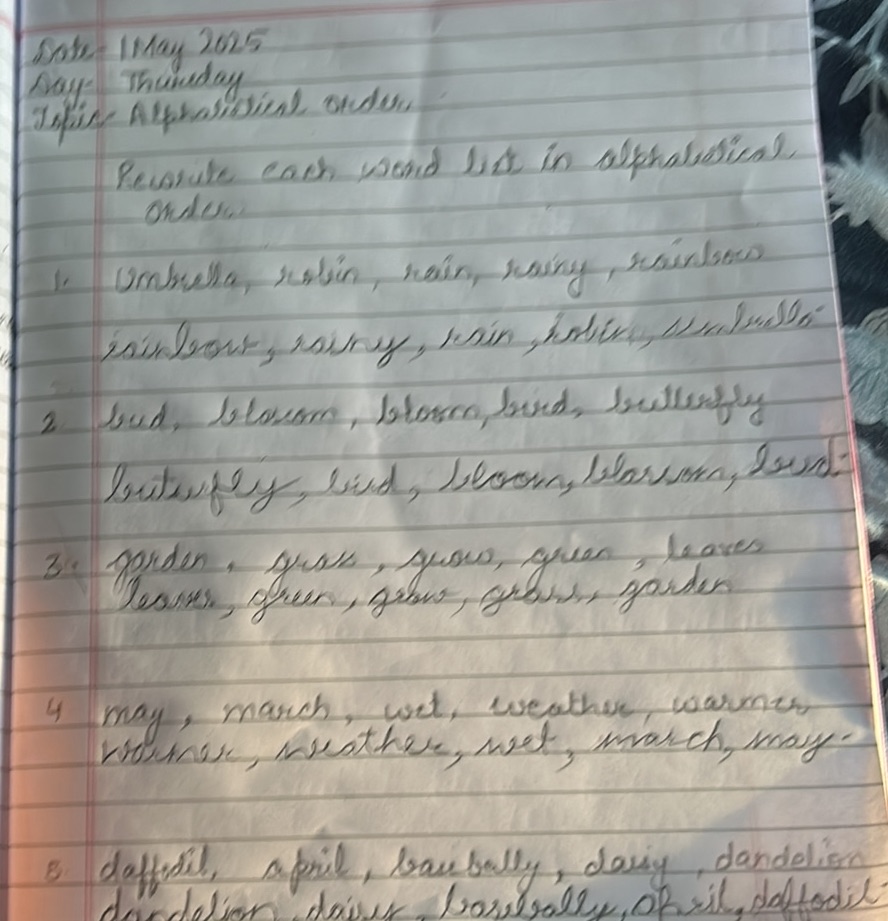 Date- 1 May 2025
Day- Thursday
Topic- Alphabetical order.
Rewrite each word list in alphabetical
order.
1. Umbrella, robin, rain, rainy, rainbow
rainbow, rainy, rain, robin, umbrella
2 bud, blossom, bloom, bird, butterfly
butterfly, bird, bloom, blossom, bud.
3. garden, grass, grow, green, leaves
leaves, green, grow, grass, garden
4 may, march, wet, weather, warmer
warmer, weather, wet, march, may.
5. daffodil, april, baseball, daisy, dandelion
dandelion, daisy, april, daffodil